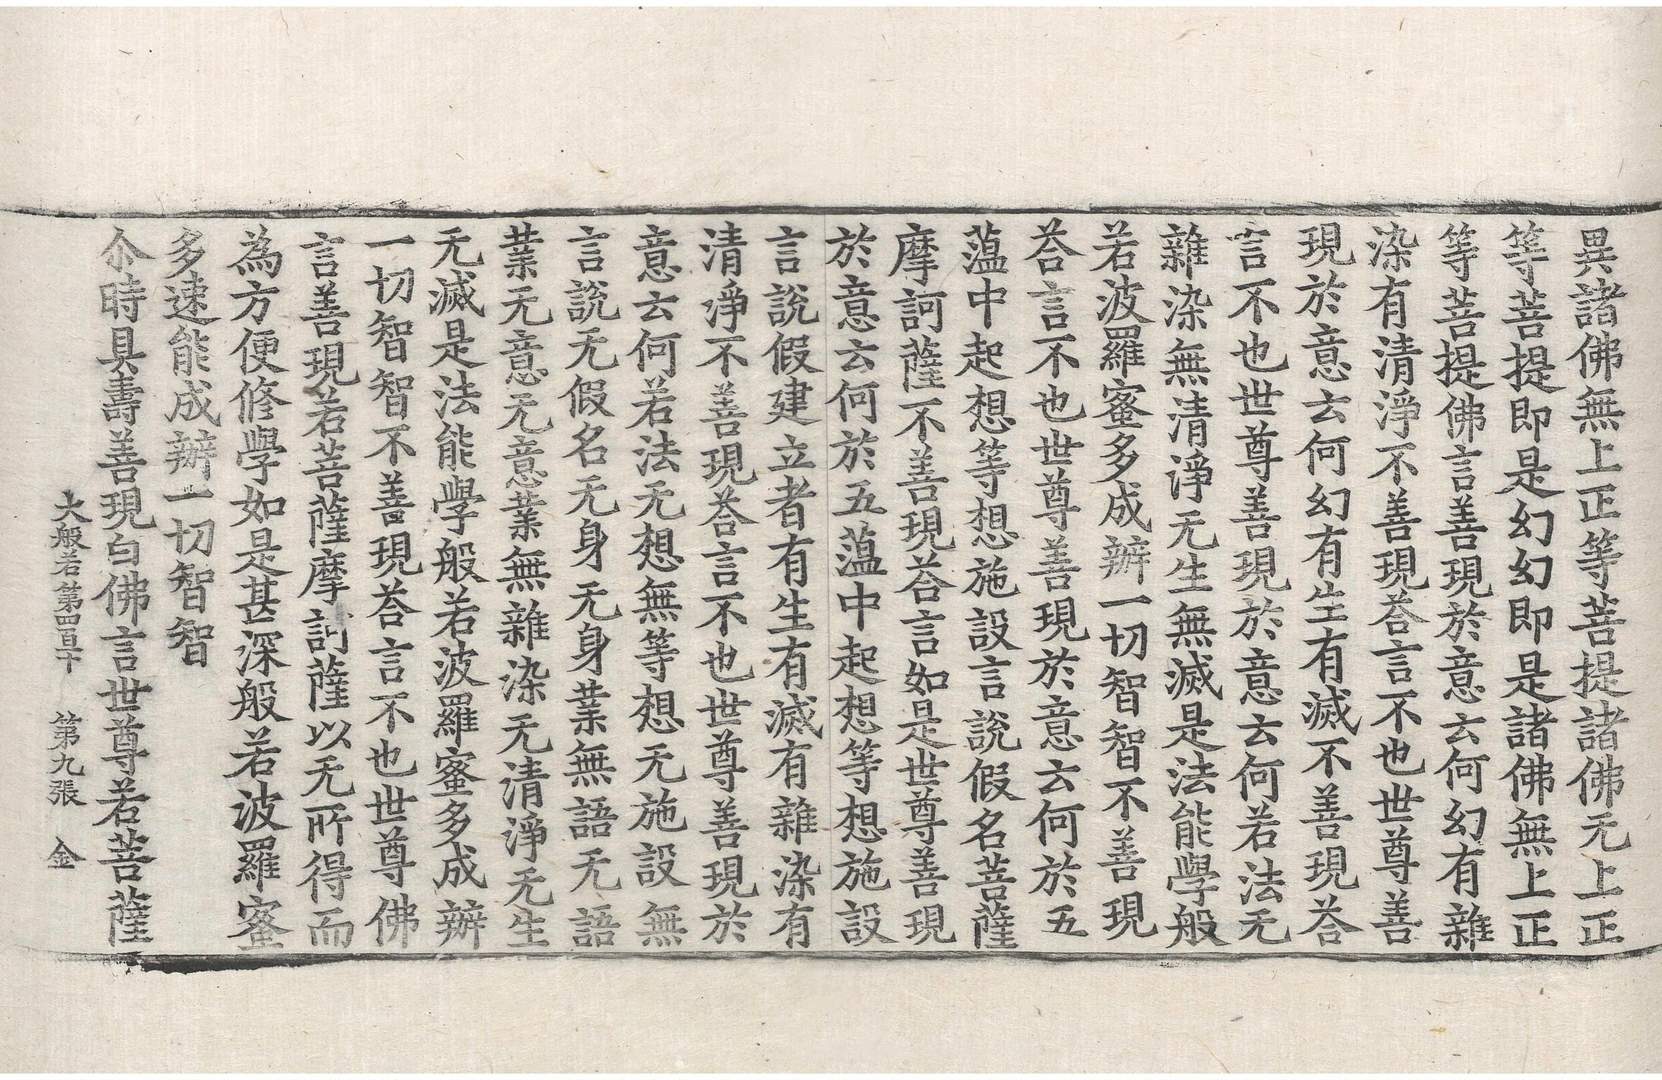 異諸佛無上正等菩提諸佛无上正
等菩提即是幻幻即是諸佛無上正
等菩提佛言善現於意云何幻有雜
染有清淨不善現荅言不也世尊善
現於意云何幻有生有滅不善現荅
言不也世尊善現於意云何若法无
雜染無清淨无生無滅是法能學般
若波羅蜜多成辦一切智智不善現
荅言不也世尊善現於意云何於五
薀中起想等想施設言說假名菩薩
摩訶薩不善現荅言如是世尊善現
於意云何於五薀中起想等想施設
言說假建立者有生有滅有雜染有
清淨不善現荅言不也世尊善現於
意云何若法无想無等想无施設無
言說无假名无身无身業無語无語
業无意无意業無雜染无清淨无生
无滅是法能學般若波羅蜜多成辦
一切智智不善現荅言不也世尊佛
言善現若菩薩摩訶薩以无所得而
為方便修學如是甚深般若波羅蜜
多速能成辦一切智智
尒時具壽善現白佛言世尊若菩薩
大般若第四百十　第九張　金